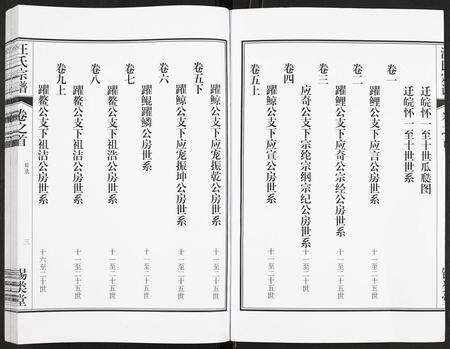 卷一
迁皖怀一至十世瓜瓞图
迁皖怀一至十世世系
卷二
躍鲤公支下应言公房世系 十一至二十五世
卷三
躍鲤公支下应奇公宗经公房世系 十一至二十五世
应奇公支下宗纶宗纲宗纪公房世系 十一至二十五世
卷五上
躍鲸公支下应宣公房世系 十一至二十五世
卷五下
躍鲸公支下应宠振乾公房世系 十一至二十五世
卷六
躍鲸公支下应宠振坤公房世系 十一至二十五世
卷七
躍鲲躍鳞公房世系 十一至二十五世
卷八
躍鳌公支下祖浩公房世系 十一至二十五世
卷九上
躍鳌公支下祖洁公房世系 十六至二十五世
汪氏宗谱
卷之首
三
锡类堂